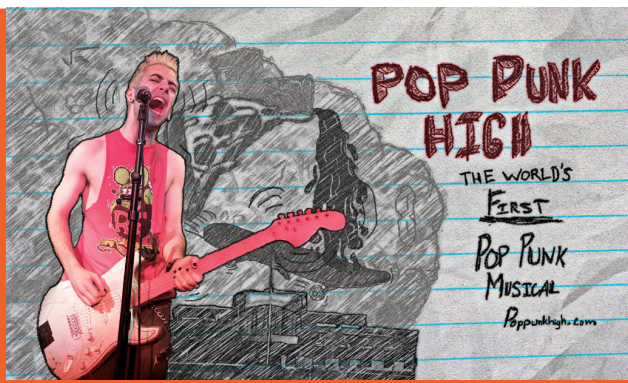 POP PUNK
HIGH
THE WORLD'S
FIRST
POP PUNK
MUSICAL
Poppunkhigh.com